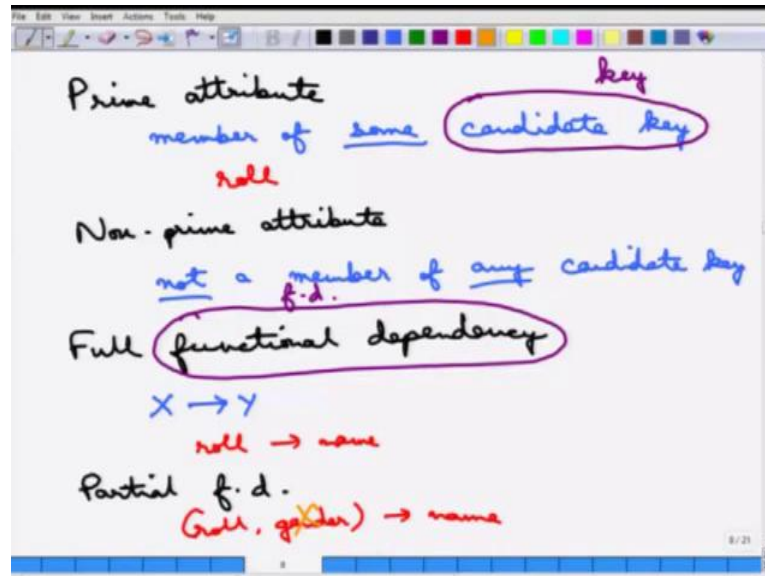 File Edit View Insert Actions Tools Help
key
Prime attribute
member of some candidate key
roll
Non-prime attribute
not a member of any candidate key
f.d.
Full functional dependency
X → Y
roll → name
Partial f.d.
(roll, gender) → name
8/21
8